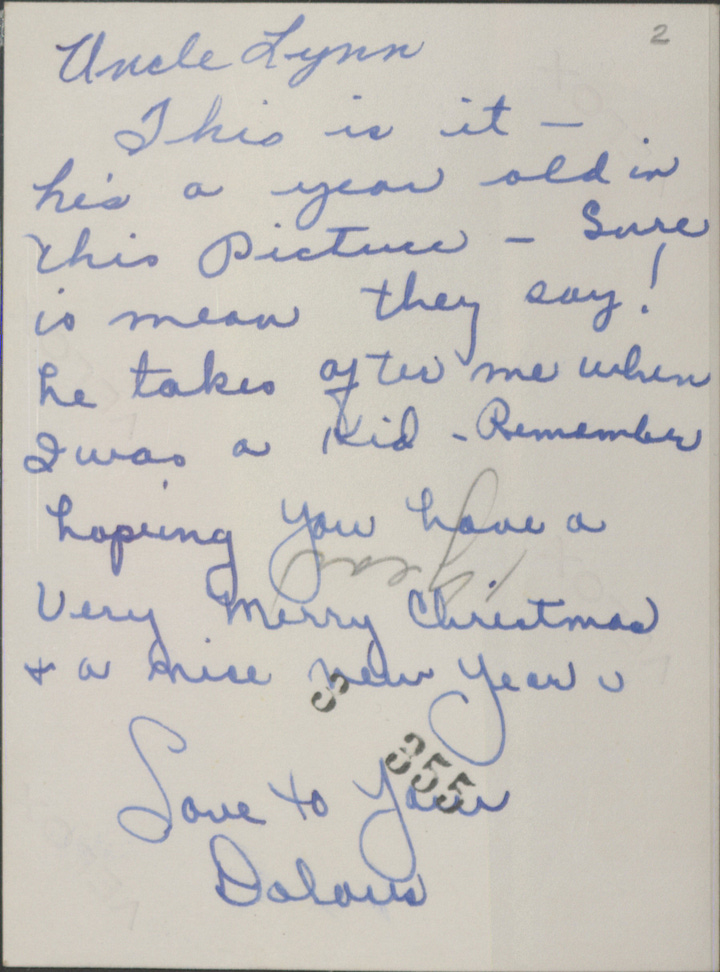 2
Uncle Lynn
This is it -
he's a year old in
this Picture - Sure
is mean they say!
he takes after me when
I was a Kid - Remember
hoping you have a
Very Merry Christmas
+ a nice new year
3
355
Love to you